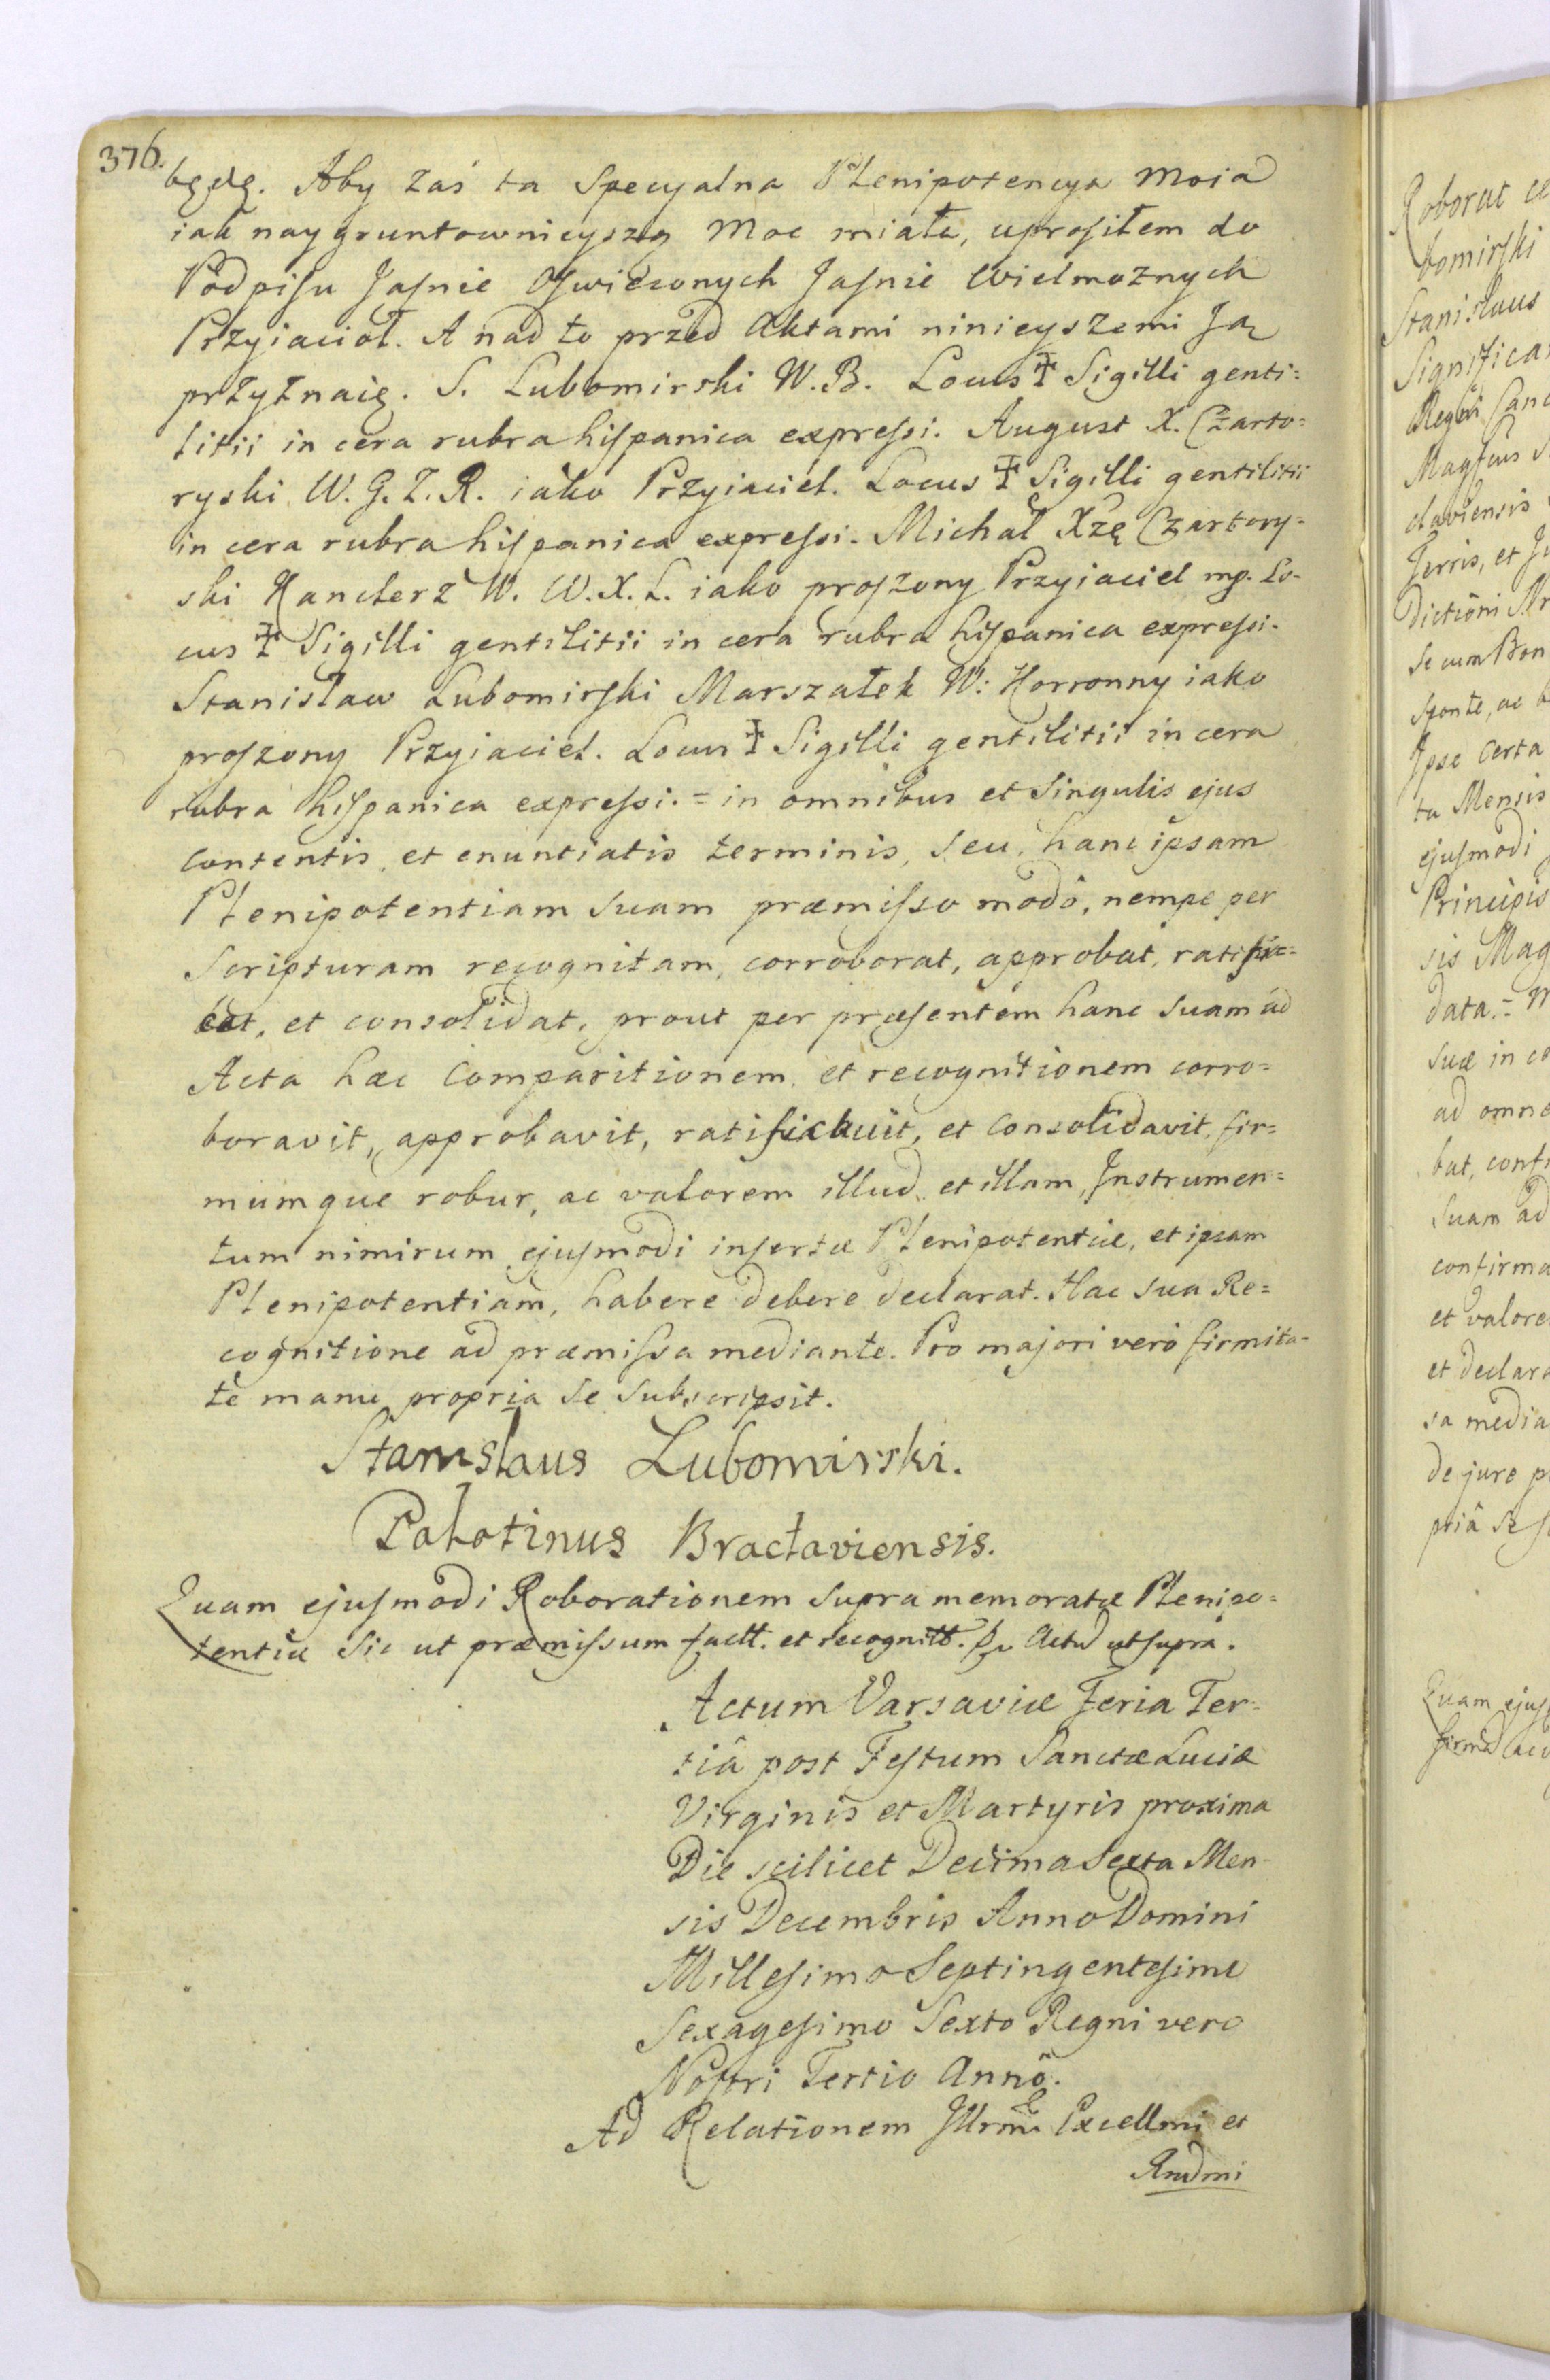 376.
będę. Aby zaś ta Specyalna Plenipotencya moia
iak naygruntownieyszą Moc miała, uprosiłem do
Podpisu Jaśnie Oswieconych Jaśnie Wielmożnych
Przyiaciół. A nad to przed Aktami ninieyszemi Ją
przyznaię. S. Lubomirski W. B. Locus ‡ Sigilli genti=
litii in cera rubra hispanica expressi. August X. Czarto=
ryski W. G. Z. R. iako Przyiaciel. Locus ‡ Sigilli gentilitii
in cera rubra hispanica expressi. Michał Xżę Czartory-
ski Kanclerz W. W. X. L. iako proszony Przyiaciel mp. Lo-
cus ‡ Sigilli gentilitii in cera rubra hispanica expressi.
Stanisław Lubomirski Marszałek W: Korronny iako
proszony Przyiaciel. Locus ‡ Sigilli gentilitii in cera
rubra hispanica expressi. = in omnibus et Singulis ejus
contentis, et enuntiatis terminis, seu hanc ipsam
Plenipotentiam suam præmisso modo, nempe per
Scripturam recognitam, corroborat, approbat, ratifi=
cat, et consolidat, prout per præsentem hanc suam ad
Acta hæc Comparitionem, et recognitionem corro=
boravit, approbavit, ratificavit, et consolidavit, fir=
mumque robur, ac valorem illud, et illam, Instrumen=
tum nimirum ejusmodi insertæ Plenipotentiæ, et ipsam
Plenipotentiam, habere debere declarat. Hac sua Re=
cognitione ad præmissa mediante. Pro majori verò firmita-
te manu propria se subscripsit.
Stanislaus Lubomirski.
Palatinus Braclaviensis.
Quam ejusmodi Roborationem supra memoratæ Plenipo=
tentiæ sic ut præmissum factt. et recognitt. Actu ut supra.
Actum Varsaviæ Feria Ter-
tiâ post Festum Sanctæ Luciæ
Virginis et Martyris proxima
Die scilicet Decima Sexta Men-
sis Decembris Anno Domini
Millesimo Septingentesimo
Sexagesimo Sexto Regni vero
Nostri Tertio Anno.
Ad Relationem Illrmi Excellmi et
Rndmi
Roborat
bomirski
Stanislaus
Regni Canc
claviensis
Terris, et
dictioni
se cum Bon
sponte, ac
Ipse certa
ta Mensis
ejusmodi
Principis
sis Mag
data. =
suæ in
ad omne
bat, conf
suam ad
confirma
et valore
et declara
sa media
de jure
priâ se
Quam ejus